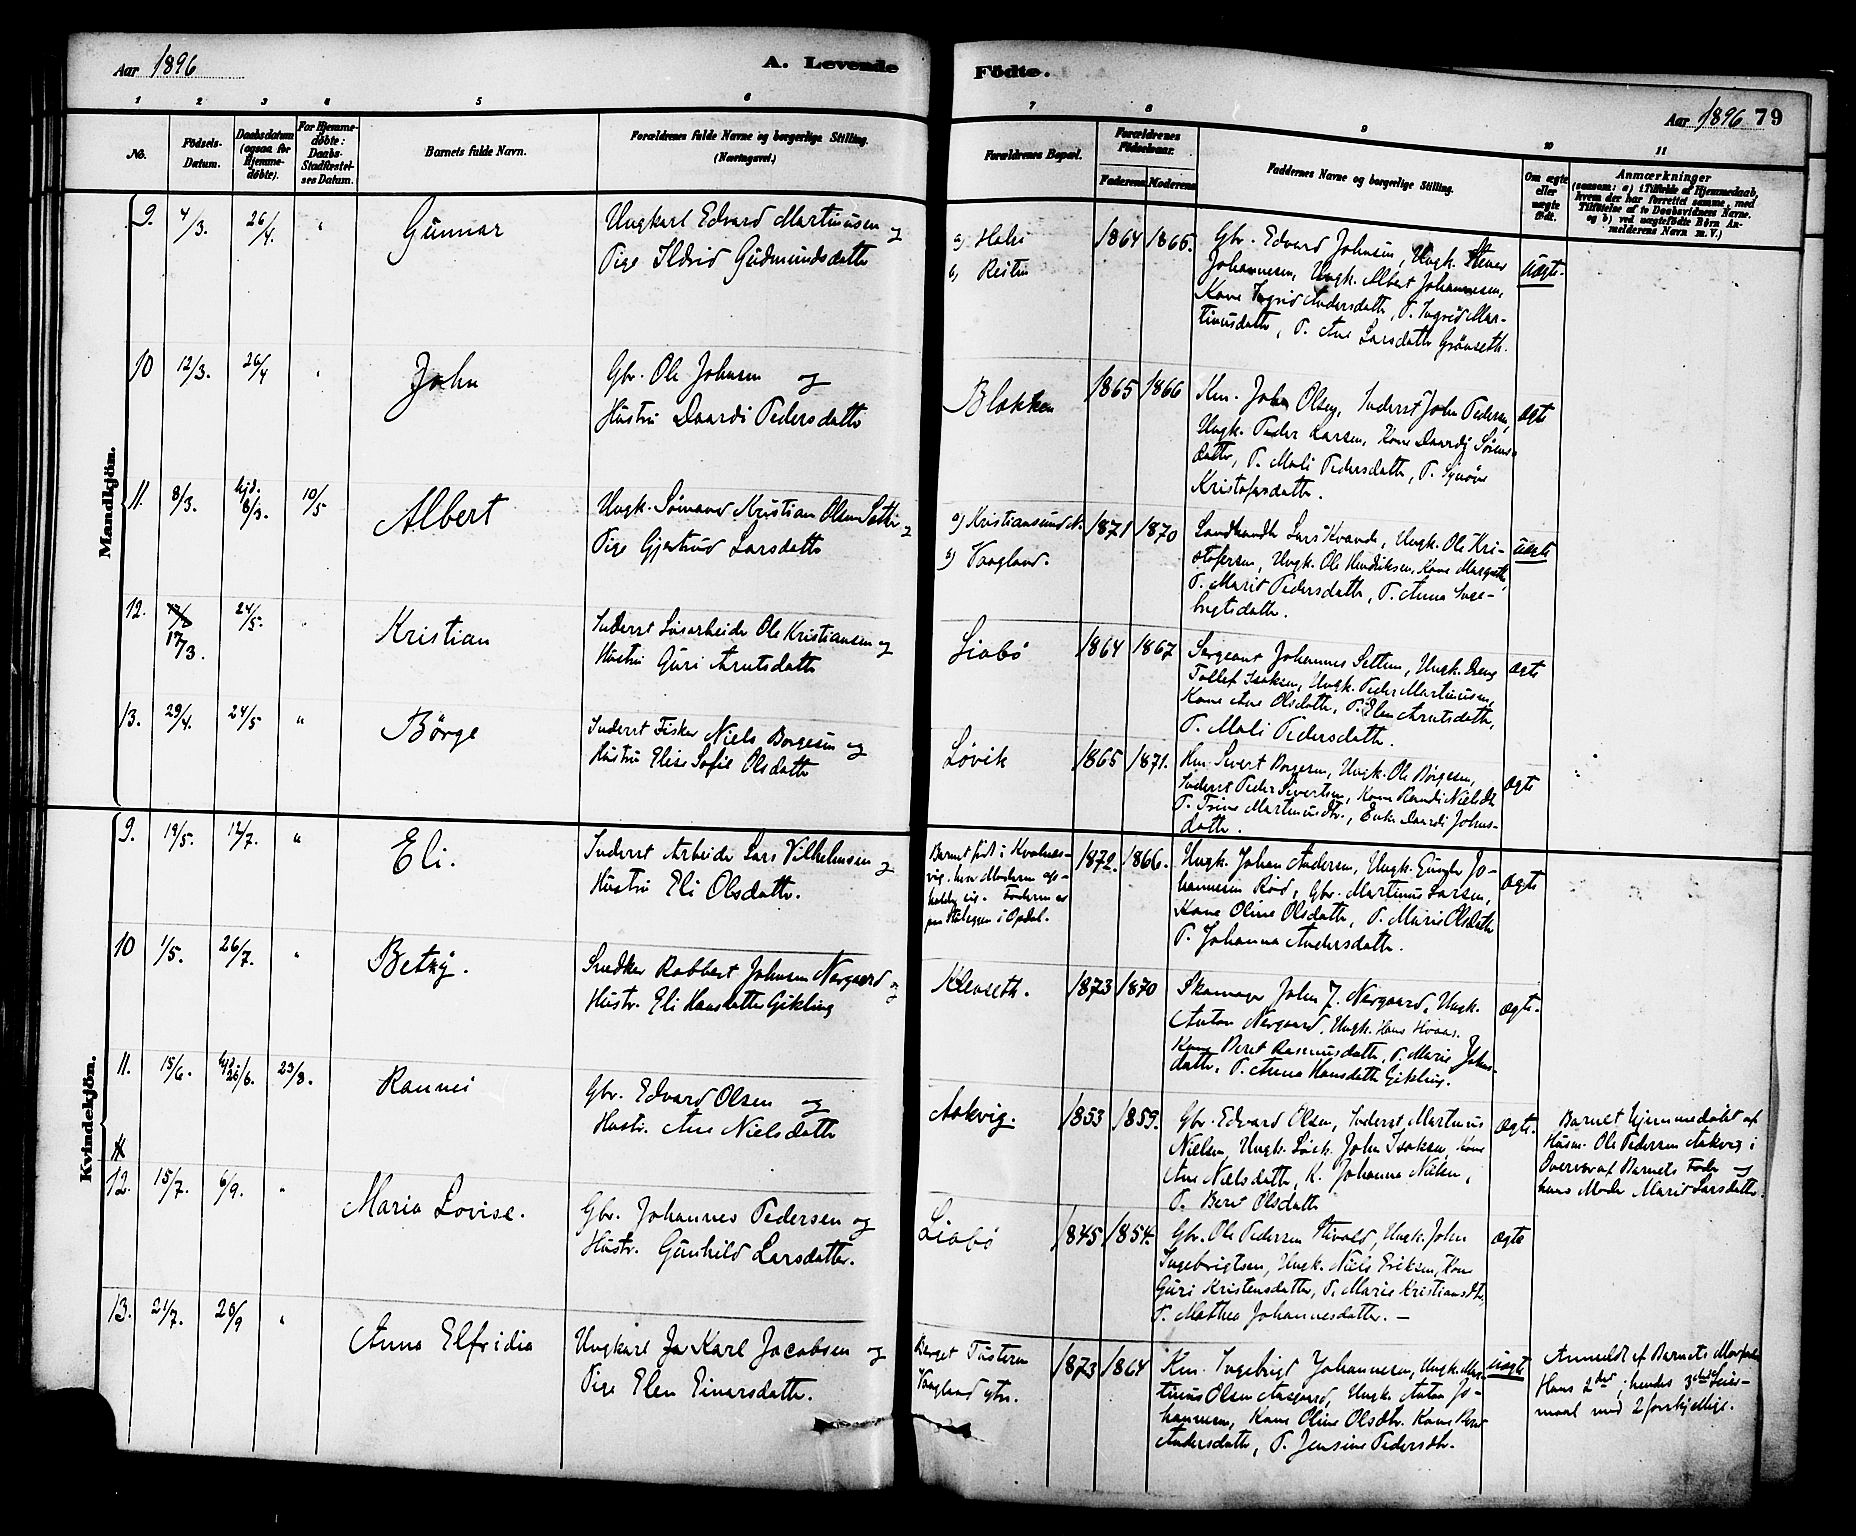 Aar 1896
A. Levende
Födte.
Aar 1896 79
1 2 3 4 5 6 7 8 9 10 11
No.
Födsels-
Datum.
Daabsdatum
(ogsaa for
Hjemme-
döbte).
For Hjemme-
döbte:
Daabs-
Stadfæstel-
ses Datum.
Barnets fulde Navn.
Forældrenes fulde Navne og borgerlige Stilling.
(Næringsvei.)
Forældrenes Bopæl.
Forældrenes
Födselsaar.
Faderens Moderens
Faddernes Navne og borgerlige Stilling.
Om ægte
eller
uægte
födt.
Anmærkninger
(saasom: a) i Tilfælde af Hjemmedaab,
hvem der har forrettet samme, med
Tilföielse af to Daabsvidners Navne.
og b) ved uægtefödte Börn An-
melderens Navn m. V.)
Mandkjön.
9. 4/3. 26/4. " Gunnar
Ungkarl Edvard Martinusen og
Pige Ildrid Gudmundsdatter
a) Halsa
b) Reiten
1864 1865.
Gbr. Edvard Johnsen, Ungk. Stener
Johannesen, Ungk. Albert Johannesen,
Kone Ingrid Andersdatter, P. Ingrid Mar-
tinusdatter, P. Ane Larsdatter Grönseth.
Uægte.
10 12/3. 26/4 " John
Gbr. Ole Johnsen og
Hustru Daardi Pedersdatter
Blekken
1865 1866
Km. John Olsen, Inderst John Pedersen,
Ungk. Peder Larsen, Kone Daardi Sörens-
datter, P. Mali Pedersdatter, P. Synöve
Kristofersdatter.
ægte
11. 8/3. hjd. 8/3. 10/5 Albert
Ungk. Sömand Kristian Olsen Sætter og
Pige Gjertrud Larsdatter
a) Kristiansund N.
b) Vaagland.
1871 1870
Landhandler Lars Kvande, Ungk. Ole Kri-
stofersen, Ungk. Ole Hendriksen, Kone Margrethe
P. Marit Pedersdatter, P. Anna Inge-
brigtsdatter.
uægte
12. 17/3. 24/5. " Kristian
Inderst Lösarbeider Ole Kristiansen og
Hustru Guri Arntsdatter
Liabö
1864 1867
Sergeant Johannes Settem, Ungk. Dreng
Tollef Isaksen, Ungk. Peder Martinusen,
Kone Ane Olsdatter, P. Elen Arntsdatter,
P. Mali Pedersdatter.
ægte
13. 29/4. 24/5 " Börge
Inderst Fisker Niels Borgesen og
Hustru Elise Sofie Olsdatter
Lövik
1865 1871.
Km. Sivert Borgesen, Ungk. Ole Börgesen,
Inderst Peder Sivertsen, Kone Randi Nielsdt
P. Trine Martinusdtr., Enke Daardi Johns-
datter.
ægte
Kvindekjön.
9. 19/5. 12/7. " Eli.
Inderst Arbeider Lars Vilhelmsen og
Hustru Eli Olsdatter.
Barnet födt i Kvalnes-
vig, hvor Moderen op-
holder sig. Faderen er
paa Stölegen i Opdal.
1872. 1866.
Ungk. Johan Andersen, Ungk. Jo-
hannesen Röd, Gbr. Martinus Larsen,
Kone Oline Olsdatter, P. Marie Olsdatter
P. Johanna Andersdatter.
ægte
10 1/5. 26/7. " Betzy.
Snedker Robbert Johnsen Nergaard og
Hustr. Eli Hansdatter Gikling
Klevseth.
1873 1870
Skomager John J. Nergaard, Ungk.
Anton Nergaard, Ungk. Hans Hvaas.
Kone Beret Rasmusdatter, P. Marie Johns-
datter, P. Anna Hansdatter Gikling.
ægte.
11. 15/6. hjd. 25/6. 23/8. Rannei
Gbr. Edvard Olsen og
Hustr. Ane Nielsdatter
Aakvig.
1853 1859.
Gbr. Edvard Olsen, Inderst Martinus
Nielsen, Ungk. John Isaksen, Kone
Ane Nielsdatter, K. Johanna Nielsen,
P. Beret Olsdatter
ægte.
Barnet hjemmedöbt af
Husm. Ole Pedersen Aakvig i
Overvær af Barnets Fader og
hans Moder Marit Larsdatter.
12. 15/7. 6/9. " Maria Lovise.
Gbr. Johannes Pedersen og
Hustr. Gunhild Larsdatter.
Liabö
1845 1854.
Gbr. Ole Pedersen, Ungk. John
Ingebrigtsen, Ungk. Nils Eriksen, Kone
Guri Kristensdatter, P. Marie Kristiansdtr,
P. Mathea Johannesdatter. —
ægte
13. 21/7. 20/9 " Anna Elfridia
Ungkarl Karl Jacobsen og
Pige Elen Einarsdatter.
Berget Tusteren
Vaagland ytr.
1873 1864
Km. Ingebrigt Johannesen, Ungk. Mar-
tinus Olsen Aasgaard, Ungk. Anton Jo-
hannesen, Kone Oline Olsdtr. Kone Beret
Andersdatter, P. Jensine Pedersdtr.
uægte
Anmeldt af Barnets Morfader
Hans 2det, hendes 3die Leier-
maal med 2 forskjellige.